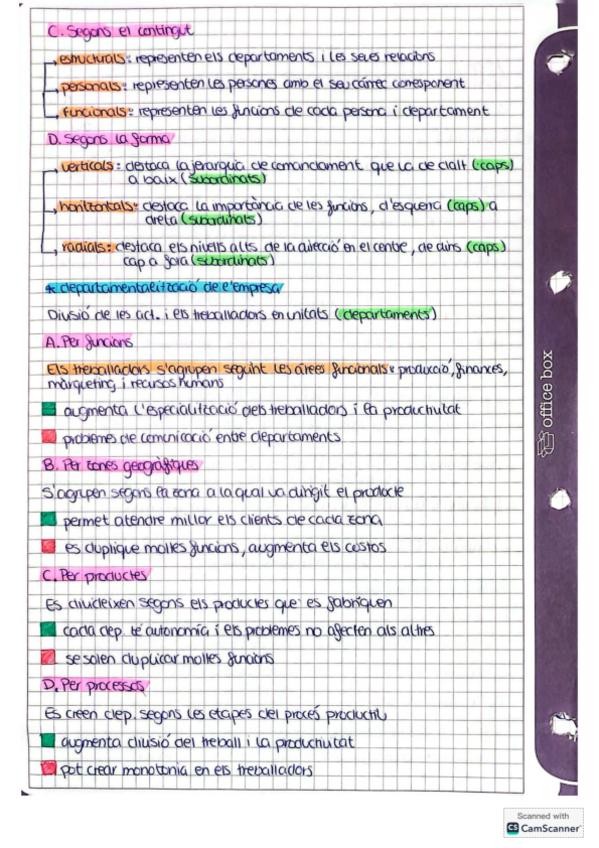 C. Segons el contingut
estructurals: representen els departaments i les seves relacions
personals: representen les persones amb el seu càrrec corresponent
funcionals: representen les funcions de cada persona i departament
D. Segons la forma
verticals: destaca la jerarquia de comandament que va de dalt (caps)
a baix (subordinats)
horitzontals: destaca la importància de les funcions, d'esquerra (caps) a
dreta (subordinats)
radials: destaca els nivells alts de la direcció en el centre, de dins (caps)
cap a fora (subordinats)
* departamentalització de l'empresa
Divisió de les act. i els treballadors en unitats (departaments)
A. Per funcions
Els treballadors s'agrupen seguint les àrees funcionals: producció, finances,
màrqueting i recursos humans
augmenta l'especialització dels treballadors i la productivitat
problemes de comunicació entre departaments
B. Per zones geogràfiques
S'agrupen segons la zona a la qual va dirigit el producte
permet atendre millor els clients de cada zona
es duplique moltes funcions, augmenta els costos
C. Per productes
Es divideixen segons els productes que es fabriquen
cada dep. té autonomia i els problemes no afecten als altres
se solen duplicar moltes funcions
D. Per processos
Es creen dep. segons les etapes del procés productiu
augmenta divisió del treball i la productivitat
pot crear monotonia en els treballadors
office box
Scanned with
CS CamScanner